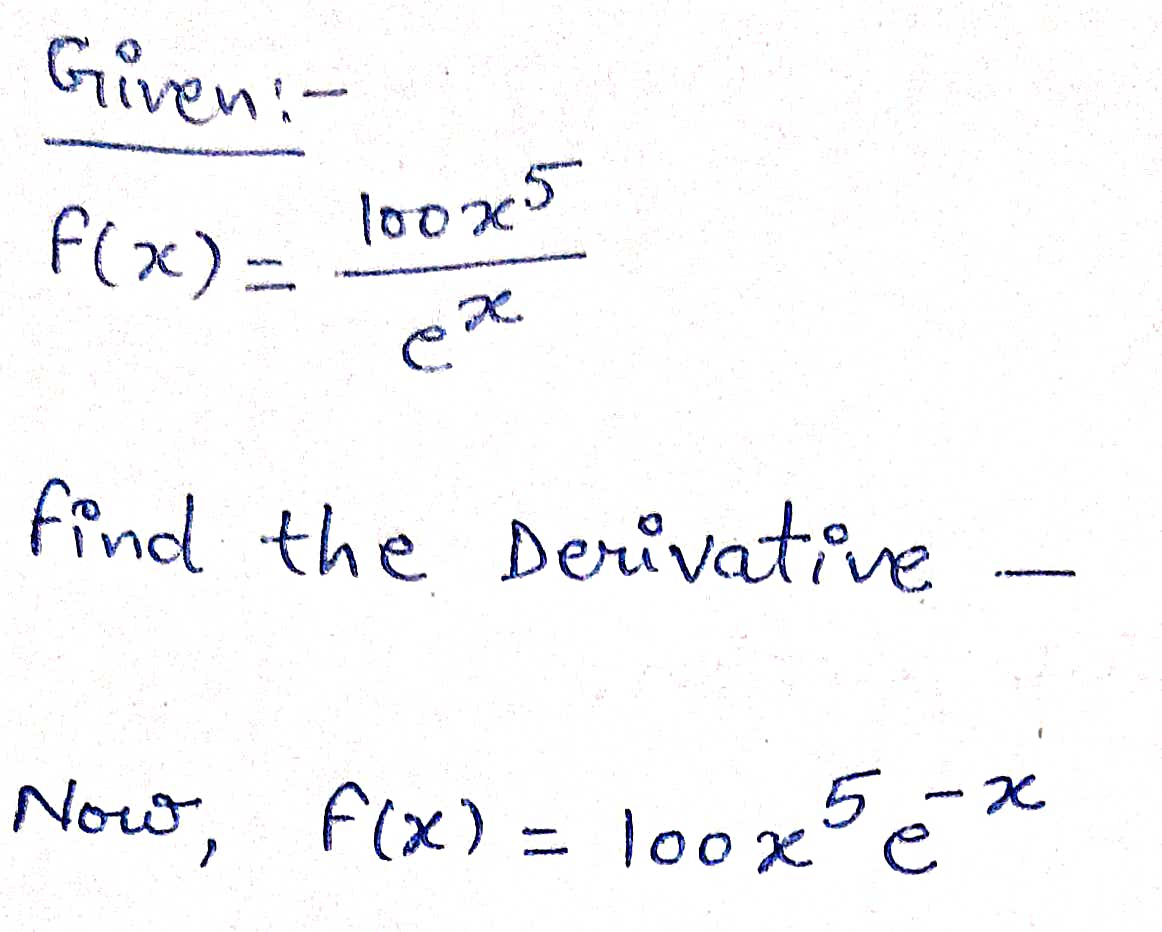 Given:-
f(x) = 100x⁵ / eˣ
find the Derivative —
Now, f(x) = 100x⁵e⁻ˣ